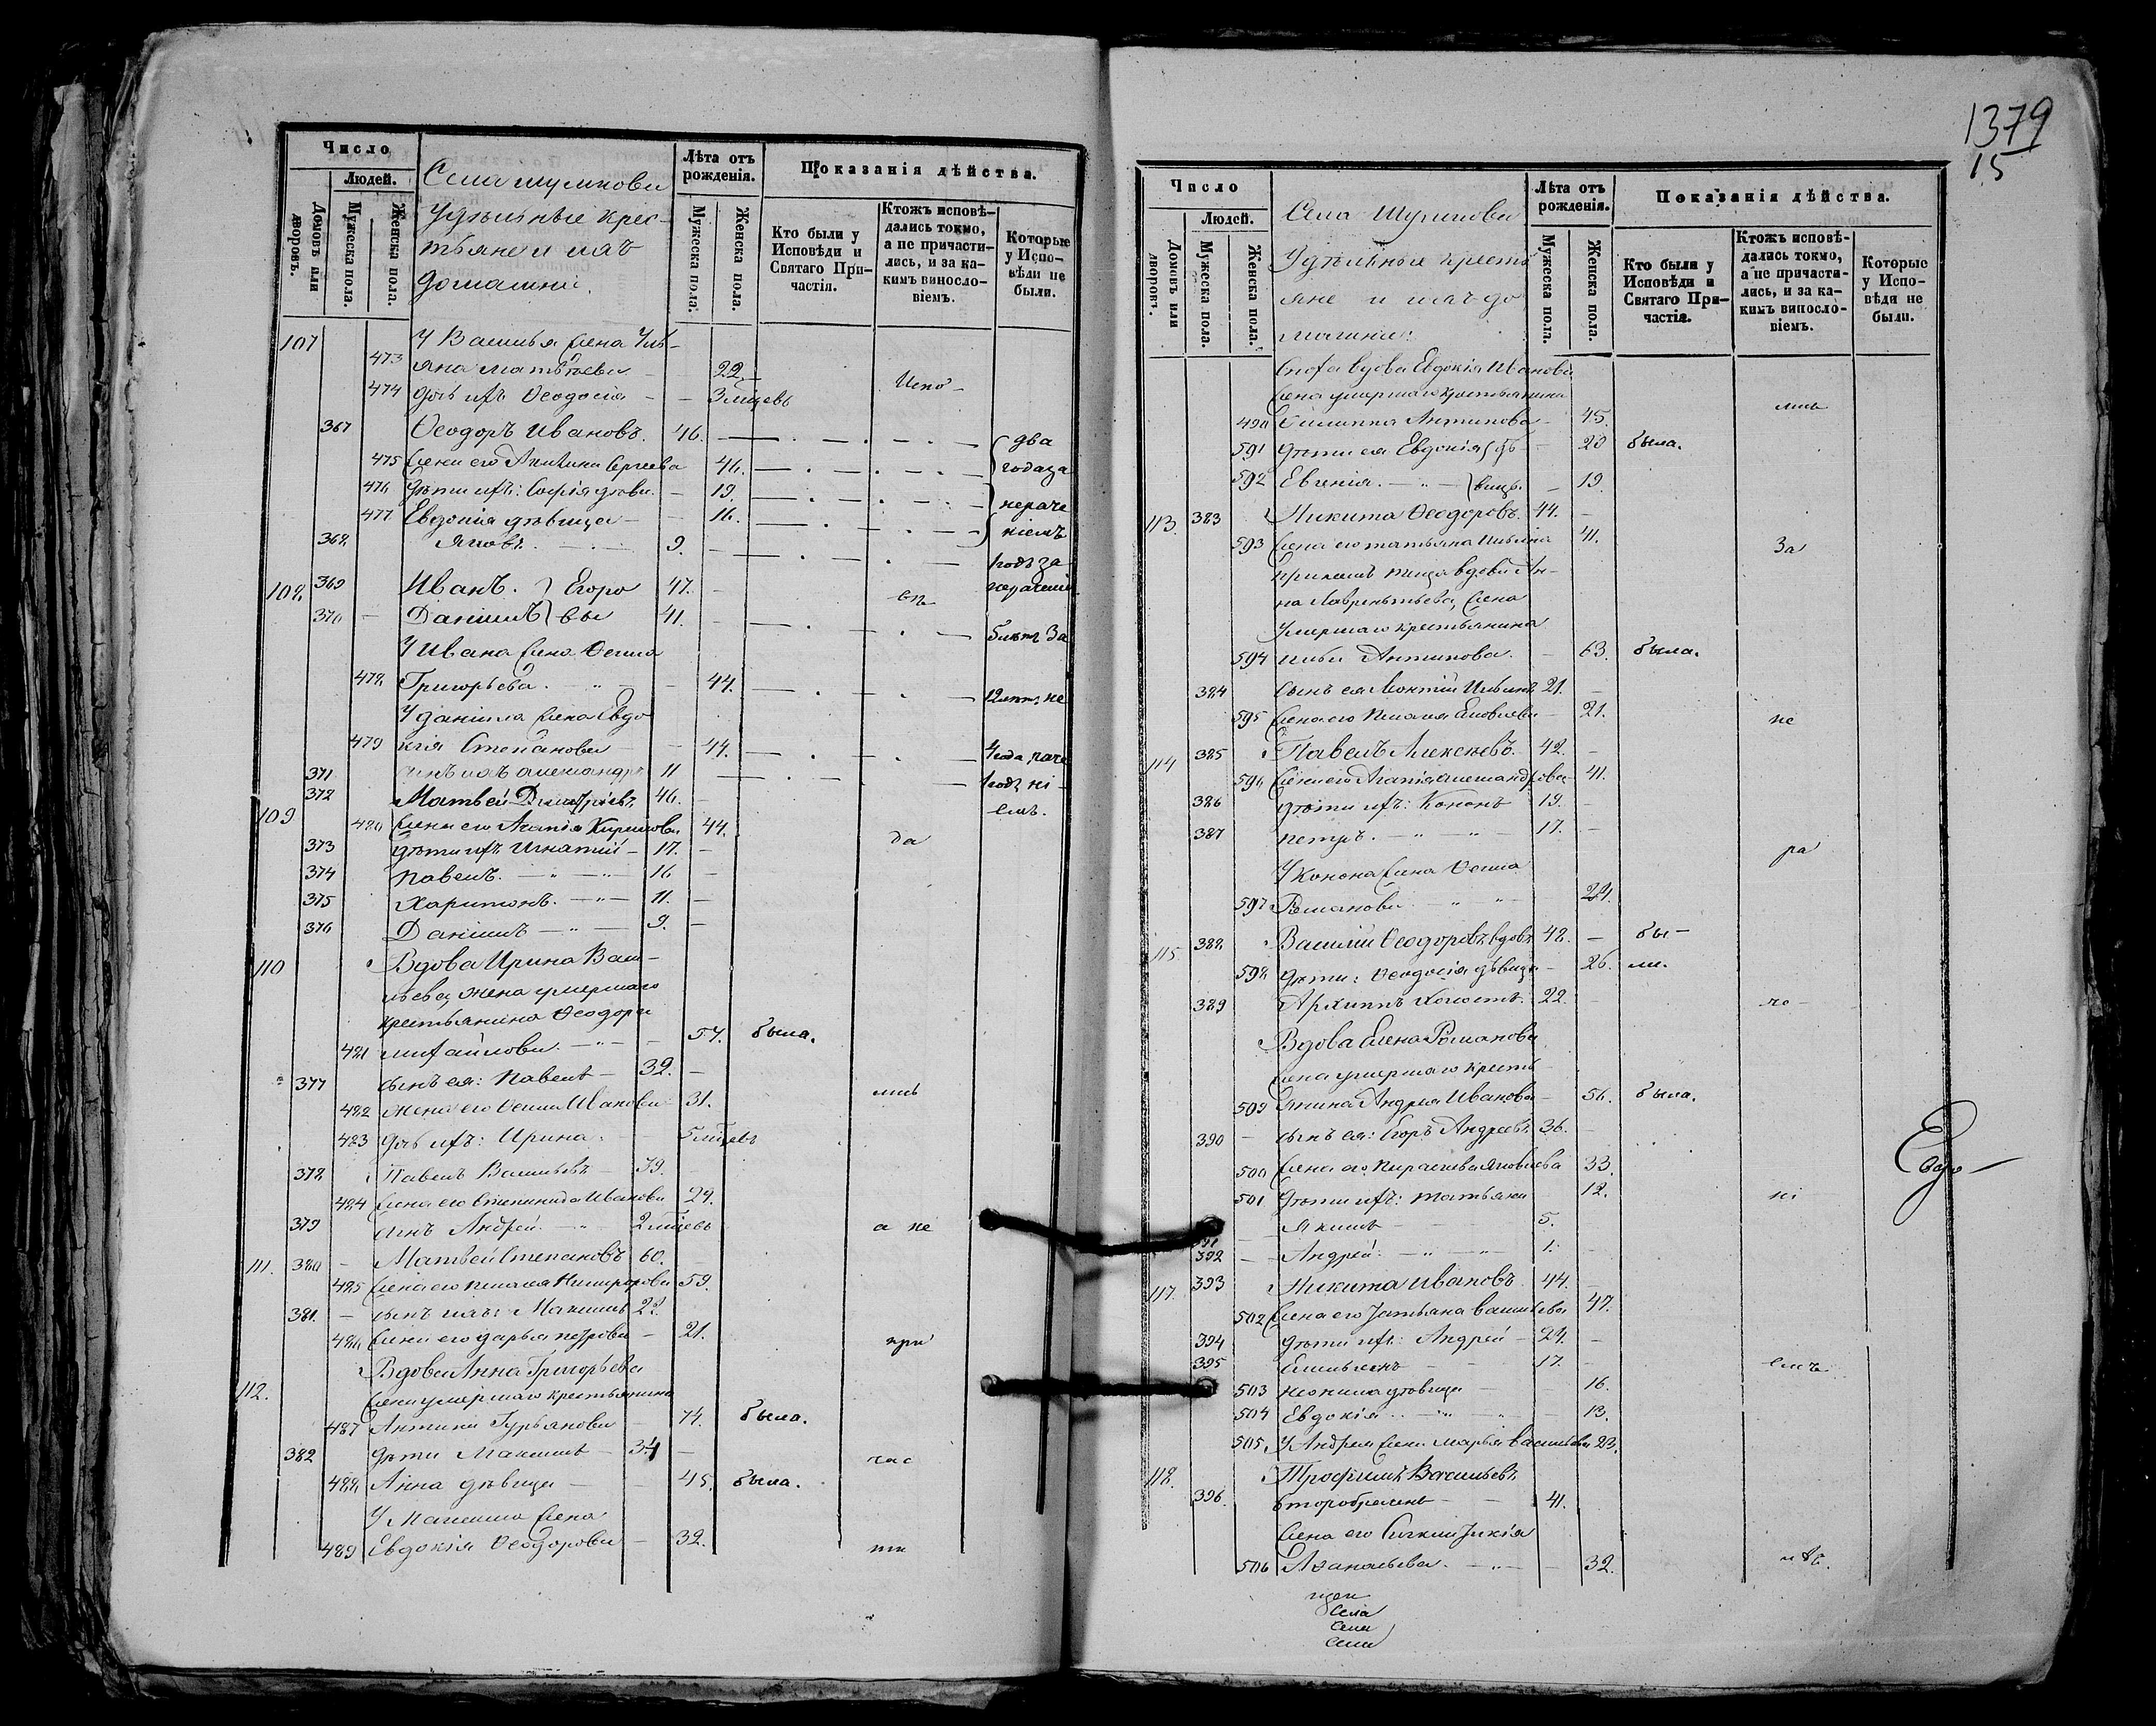 Число
Людей.
Домовъ или дворовъ.
Мужеска пола.
Женска пола.
Села
Удѣльные крес-
тьяне и ихъ
домашніи.
Лѣта отъ рожденія.
Мужеска пола.
Женска пола.
Показанія дѣйства.
Кто были у Исповѣди и Святаго При-частія.
Ктожъ исповѣ-дались токмо, а не причасти-лись, и за ка-кимъ виносло-віемъ.
Которые у Испо-вѣди не были.
107 У Василья жена Уль-
473 яна Матвѣева 22
474 дочь ихъ Ѳеодосія - - 3 мѣсяцевъ Испо-
367 Ѳеодоръ Ивановъ. 46. два
475 жена его Акилина Сергѣева 46. года за
476 дѣти ихъ: Софія дѣви. - 19. нераче
477 Евдокія дѣвица - 16. ніемъ
368 Яковъ. 9. годъ за
108. 369 Иванъ. } Егоро 47. - вѣ нераченіе
370 - Даніилъ } вы 41. 5 лѣтъ за
У Ивана жена Ѳекла
478 Григорьева. 44. 12 лѣтъ не
У Даніила жена Евдо
479 кія Степанова - 44. 4 года раче
371 сынъ ихъ Александръ 11 1 годъ ні-
372 Матвей Димитріевъ 46. - емъ.
109 480 жена его Агапія Кириллова 44.
373 дѣти ихъ Игнатій - 17. - да
374 Павелъ. - „ - „ - 16 -
375 Харитонъ. - „ - 11. -
376 Даніилъ - „ - 9. -
110 Вдова Ирина Васи-
льева, жена умершаго
крестьянина Ѳеодора
481 Михайлова. - „ - 57. была.
377 сынъ ея: Павелъ - 32. -
482 жена его Ѳекла Иванова 31. лись
483 дочь ихъ: Ирина. 5 мѣсяцевъ
378 Павелъ Васильевъ - 39.
484 жена его Степанида Иванова 29.
379 сынъ Андрей. - „ - 2 мѣсяцевъ а не
111. 380 - Матвей Степановъ 60.
485 жена его Пелагея Никифорова 59.
381. - сынъ ихъ: Максимъ 22.
486 жена его Дарья Петрова - 21. при
Вдова Анна Григорьева
112. жена умершаго крестьянина
487 Антипы Гурьянова - 74. была.
382 дѣти Максимъ - 34 - час
488 Анна дѣвица - - 45. была.
У Максима жена
489 Евдокія Ѳеодорова - 32. ти
1379
15
Число
Людей.
Домовъ или дворовъ.
Мужеска пола.
Женска пола.
Села
Удѣльные кресть
яне и ихъ до
машніе:
Лѣта отъ рожденія.
Мужеска пола.
Женска пола.
Показанія дѣйства.
Кто были у Исповѣди и Святаго При-частія.
Ктожъ исповѣ-дались токмо, а не причасти-лись, и за ка-кимъ виносло-віемъ.
Которые у Испо-вѣди не были.
Сноха вдова Евдокія Иванова
жена умершаго крестьянина лись
490 Филиппа Антипова - 45.
591 дѣти ея Евдокія } дѣ - 20 была.
592 Евгенія. - „ - } вицы. - 19.
113. 383 Никита Ѳеодоровъ. 44. -
593 жена его Татьяна Ильина 41. За
теща вдова Ан-
на Лаврентьева, жена
умершаго крестьянина
594 Ильи Антипова. - 63. была.
384 сынъ ея Леонтій Ильинъ 21. -
595 жена его Пелагея Яковлева - 21. не
114 385 Павелъ Алексѣевъ. 42. -
596 жена его Агапія Александрова 41.
386 дѣти ихъ: Кононъ 19. -
387 Петръ. - „ - „ - 17. -
ра
У Конона жена Ѳекла
597 Романова - „ „ 24.
115. 388. Василій Ѳеодоровъ вдовъ 48. - бы-
598 дѣти: Ѳеодосія дѣвица - 26. ли.
389 Архиппъ холостъ. 22. - че-
Вдова Елена Романова
жена умершаго кресть
509 янина Андрея Иванова - 56. была.
390 - сынъ ея: Егоръ Андреевъ 36. -
500 жена его Яковлева 33.
501 дѣти ихъ: Татьяна 12. ні
391 Якимъ - - 5.
392 - Андрей. - „ - „ - 1. -
117. 393 Никита Ивановъ 44. -
502 жена его Татьяна Васильева 47.
394 дѣти ихъ: Андрей - 24. -
395 Емильянъ - 17. - емъ
503 Неонила дѣвица - 16.
504 Евдокія .. - „ - - 13.
505. У Андрея жена Марья Васильева 23.
118. Трофимъ Васильевъ
396. второбраченъ - - 41.
жена его
506 Аѳанасьева. - „ - - 32.
Села
Села
Села